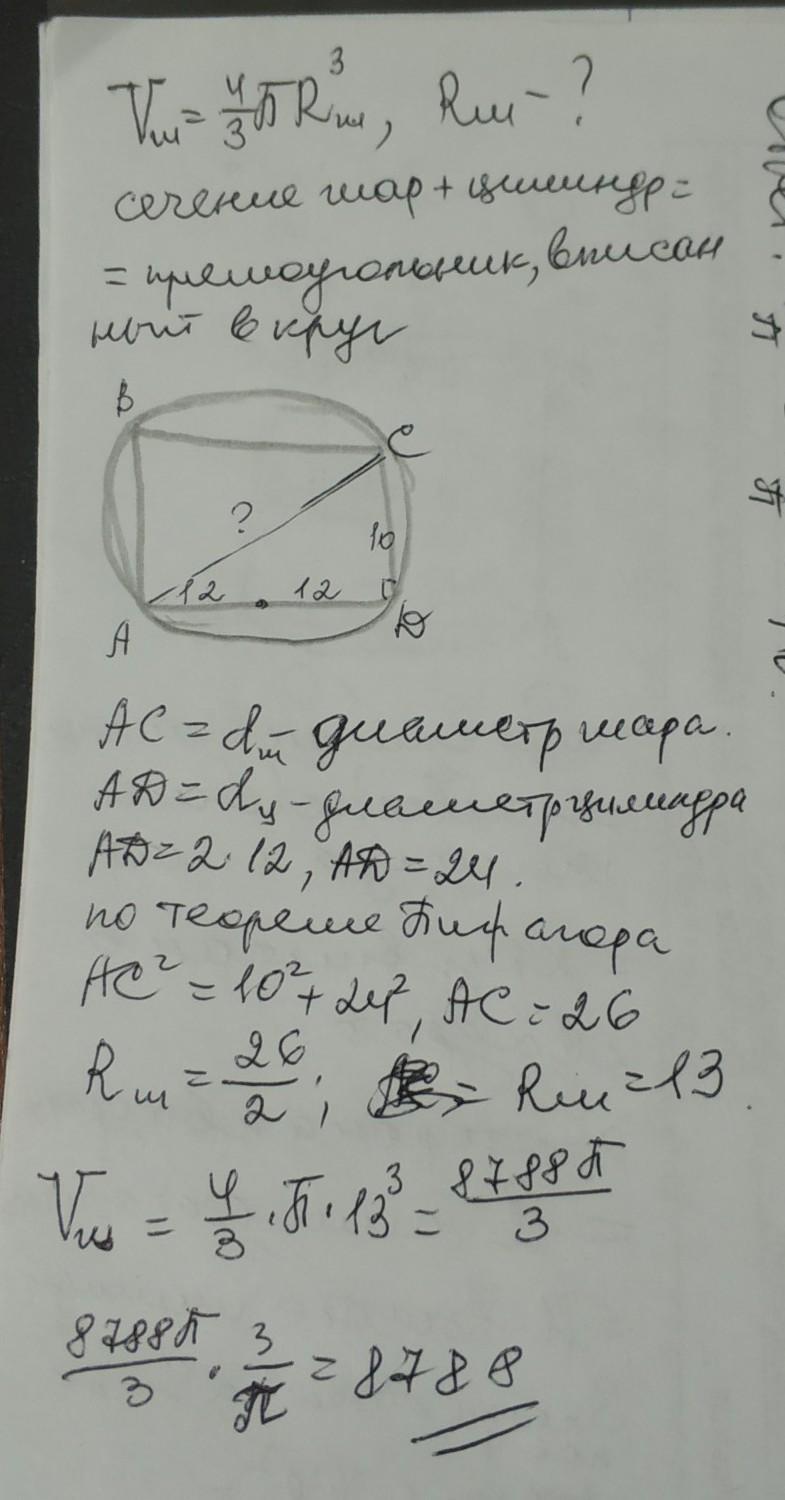 Vш = 4/3 П Rш³, Rш - ?
сечение шар + цилиндр =
= прямоугольник, вписан
ный в круг
B
C
?
10
12 12
A
D
AC = dш - диаметр шара.
AD = dц - диаметр цилиндра
AD = 2·12, AD = 24.
по теореме Пифагора
AC² = 10² + 24², AC = 26
Rш = 26/2; = Rш = 13.
Vш = 4/3 · П · 13³ = 8788П/3
8788П/3 · 3/П = 8788